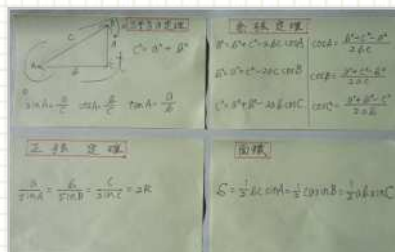 三平方の定理
B
c
a
A
b
c² = a² + b²
sinA = a/c cosA = b/c tanA = a/b
余弦定理
a² = b² + c² - 2bc cosA cosA = (b² + c² - a²)/2bc
b² = a² + c² - 2ac cosB cosB = (a² + c² - b²)/2ac
c² = a² + b² - 2ab cosC cosC = (a² + b² - c²)/2ab
正弦定理
a/sinA = b/sinB = c/sinC = 2R
面積
S = 1/2 bc sinA = 1/2 ca sinB = 1/2 ab sinC